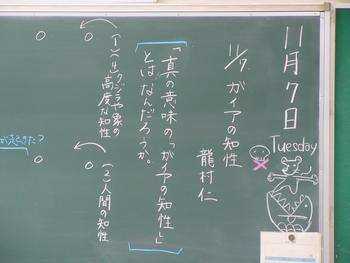 11月7日
Tuesday
11/7 ガイアの知性
龍村仁
「真の意味の「ガイアの知性」
とはなんだろうか。
(1)(4)クジラや象の
高度な知性
(2)人間の知性